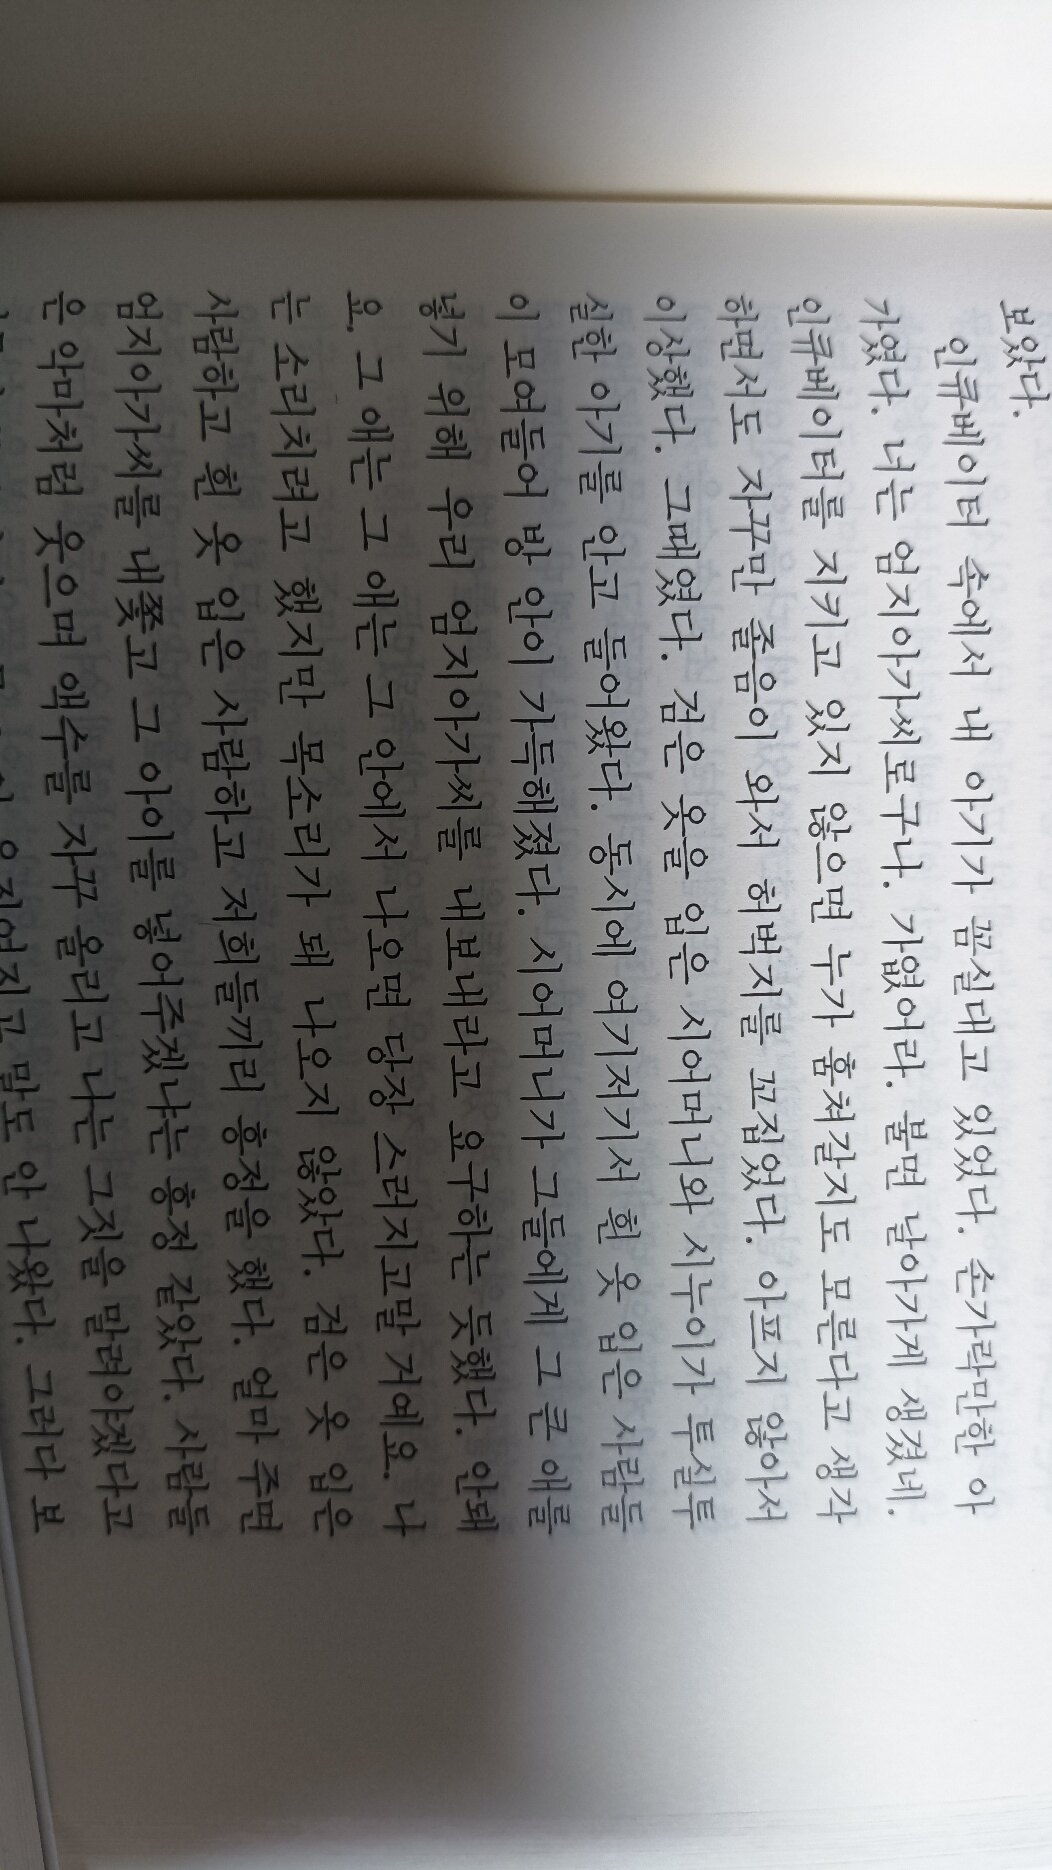 보았다.
인큐베이터 속에서 내 아기가 꼼실대고 있었다. 손가락만한 아
가였다. 너는 엄지아가씨로구나. 가엾어라. 불면 날아가게 생겼네.
인큐베이터를 지키고 있지 않으면 누가 훔쳐갈지도 모른다고 생각
하면서도 자꾸만 졸음이 와서 허벅지를 꼬집었다. 아프지 않아서
이상했다. 그때였다. 검은 옷을 입은 시어머니와 시누이가 투실투
실한 아기를 안고 들어왔다. 동시에 여기저기서 흰 옷 입은 사람들
이 모여들어 방 안이 가득해졌다. 시어머니가 그들에게 그 큰 애를
넣기 위해 우리 엄지아가씨를 내보내라고 요구하는 듯했다. 안돼
요. 그 애는 그 애는 그 안에서 나오면 당장 스러지고말 거예요. 나
는 소리치려고 했지만 목소리가 돼 나오지 않았다. 검은 옷 입은
사람하고 흰 옷 입은 사람하고 저희들끼리 흥정을 했다. 얼마 주면
엄지아가씨를 내쫓고 그 아이를 넣어주겠냐는 흥정 같았다. 사람들
은 악마처럼 웃으며 액수를 자꾸 올리고 나는 그것을 말려야겠다고
움직여지고 말도 안 나왔다. 그러다 보